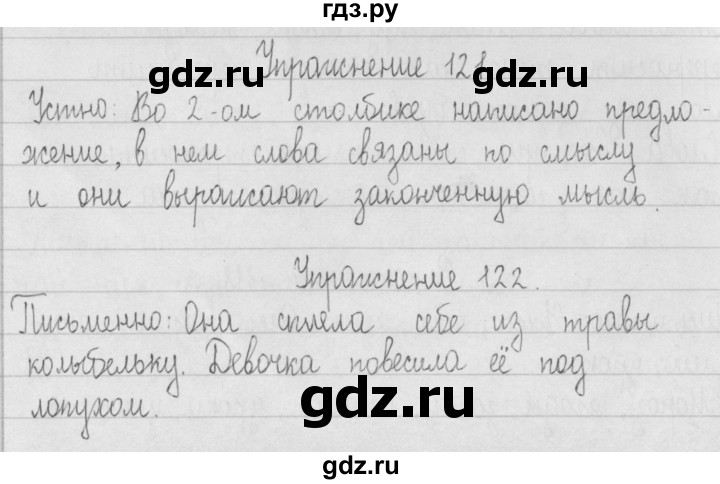 гдз.ру
Упражнение 121
gdz.ru gdz.ru
Устно: Во 2-ом столбике написано предло-
жение, в нем слова связаны по смыслу
и они выражают законченную мысль.
gdz.ru gdz.ru
Упражнение 122.
Письменно: Она сплела себе из травы
колыбельку. Девочка повесила её под
лопухом.
gdz.ru gdz.ru
gdz.ru